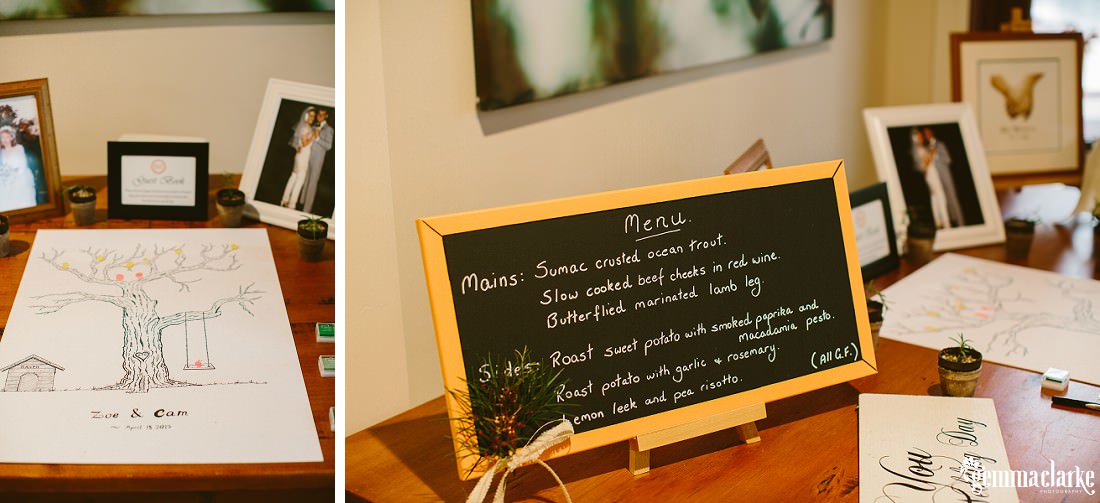 Guest Book
Zoe & Cam
April 18 2015
Menu.
Mains: Sumac crusted ocean trout.
Slow cooked beef cheeks in red wine.
Butterflied marinated lamb leg.
Sides- Roast sweet potato with smoked paprika and
macadamia pesto.
Roast potato with garlic & rosemary.
(All G.F.)
Lemon leek and pea risotto.
You
Day
gemmaclarke
PHOTOGRAPHY